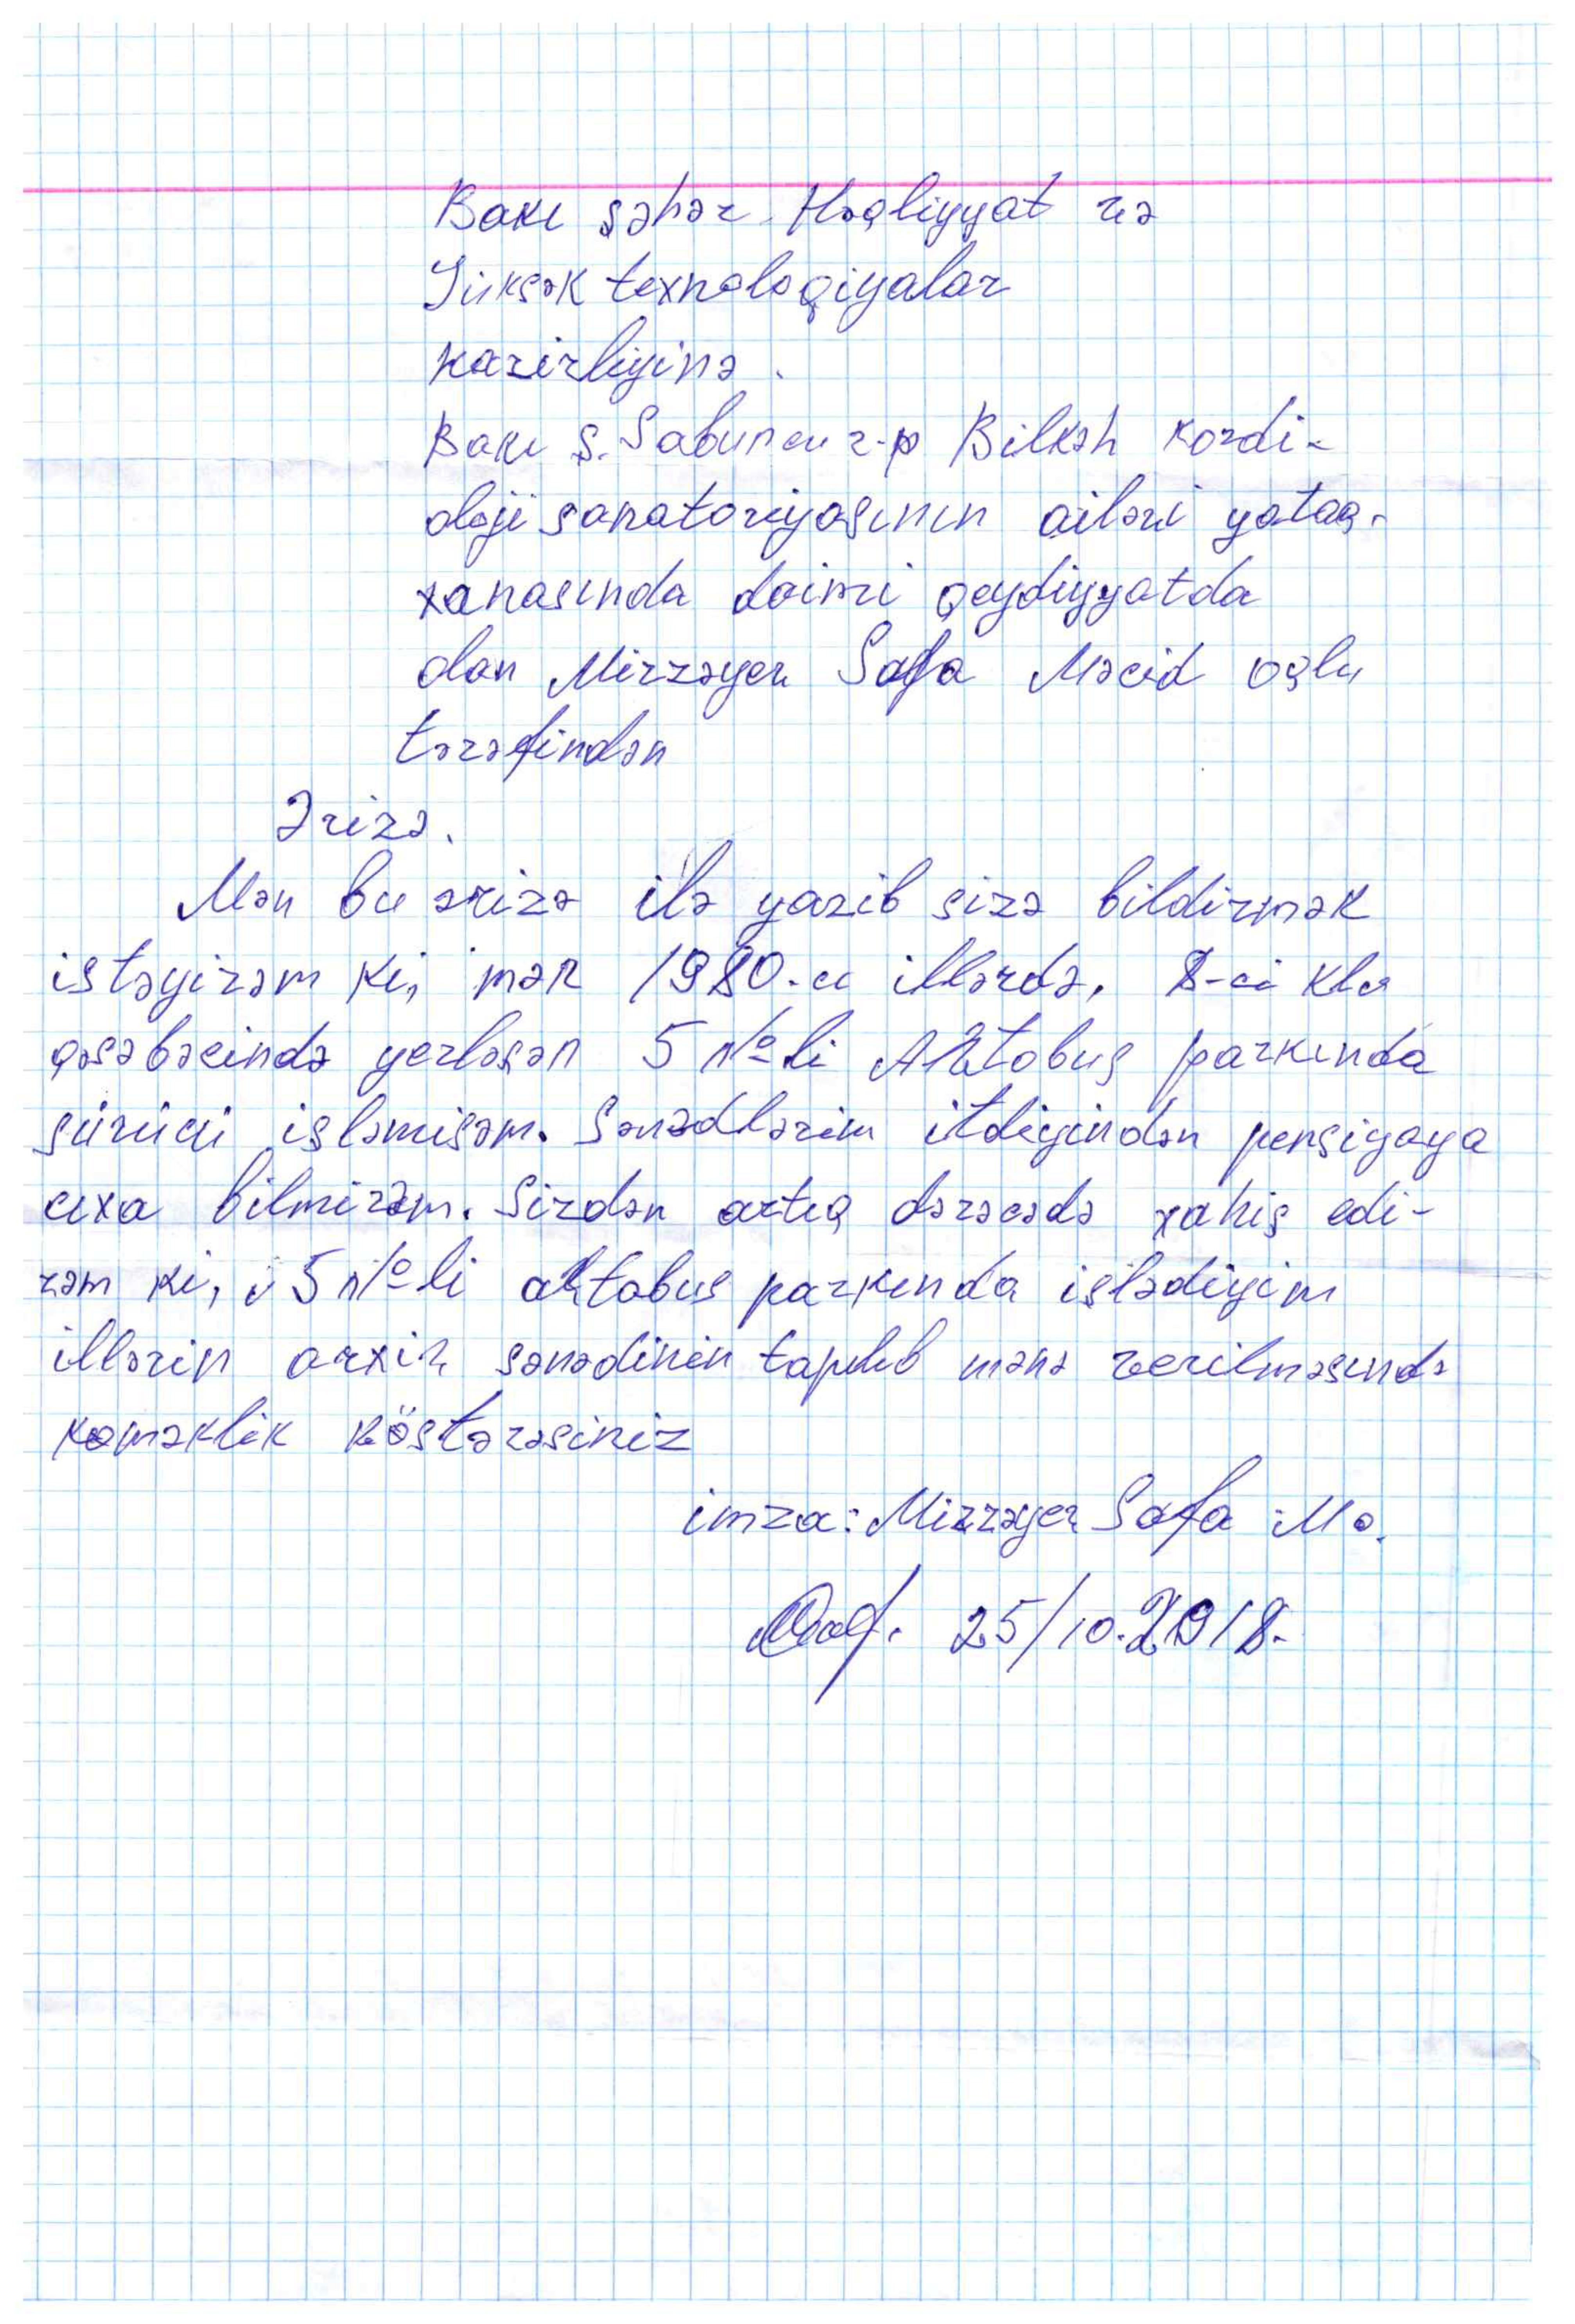 Bakı şəhər Nəqliyyat və
Yüksək texnologiyalar
nazirliyinə.
Bakı ş. Sabunçu r-n Bilgəh kardi-
oloji sanatoriyasının ailəvi yataq-
xanasında daimi qeydiyyatda
olan Mirzəyev Safa Məcid oğlu
tərəfindən
Ərizə.
Mən bu ərizə ilə yazıb sizə bildirmək
istəyirəm ki, mən 1980-cı illərdə, 8-ci klm
qəsəbəcində yerləşən 5 №li Avtobus parkında
sürücü işləmişəm. Sənədlərim itdiyindən pensiyaya
cıxa bilmirəm. Sizdən artıq dərəcədə xahiş edi-
rəm ki, 5 №li avtobus parkında işlədiyim
illərin arxiv sənədinin tapılıb mənə verilməsində
koməklik göstərəsiniz
imza: Mirzəyev Safa Mə.
25/10.2018.